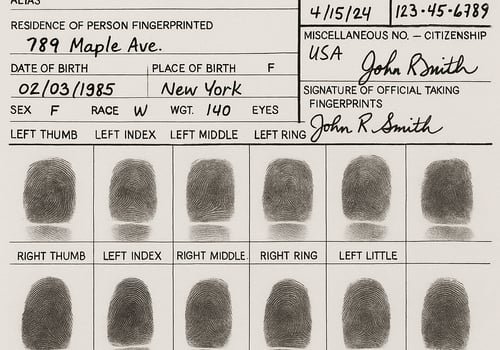 ALIAS
4/15/24 123-45-6789
RESIDENCE OF PERSON FINGERPRINTED
789 Maple Ave.
MISCELLANEOUS NO. — CITIZENSHIP
USA John R Smith
DATE OF BIRTH PLACE OF BIRTH F
02/03/1985 New York
SIGNATURE OF OFFICIAL TAKING
FINGERPRINTS
John R Smith
SEX F RACE W WGT. 140 EYES
LEFT THUMB LEFT INDEX LEFT MIDDLE LEFT RING
RIGHT THUMB LEFT INDEX RIGHT MIDDLE. RIGHT RING LEFT LITTLE